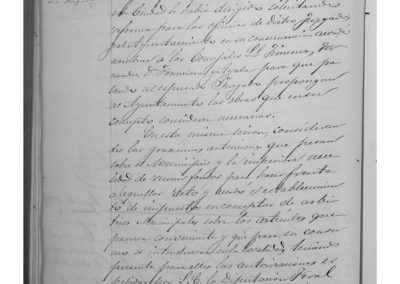 esta Ciudad le había dirigido solicitando
reforma para las oficinas de dicho Juzgado,
y el Ayuntamiento en su consecuencia acordó
nombrar a los Concejales Sres. Jimenez,
nandez Dn. Francisco y Ayala para que pa
sando al expresado Juzgado propongan
al Ayuntamiento las obras que en su
concepto consideren necesarias.
En esta misma sesion, consideran
do las gravísimas atenciones que pesan
sobre el Municipio y la imperiosa nece
sidad de reunir fondos para hacer frente
a aquellas votó y acordó el establecimien
to de impuestos en conceptos de arbi
trios Municipales sobre los artículos que
parezca conveniente y que para su consu
mo se introduzcan en la localidad, teniendo
presente para ello las autorizaciones es
pedidas por S.E. la Diputación Foral